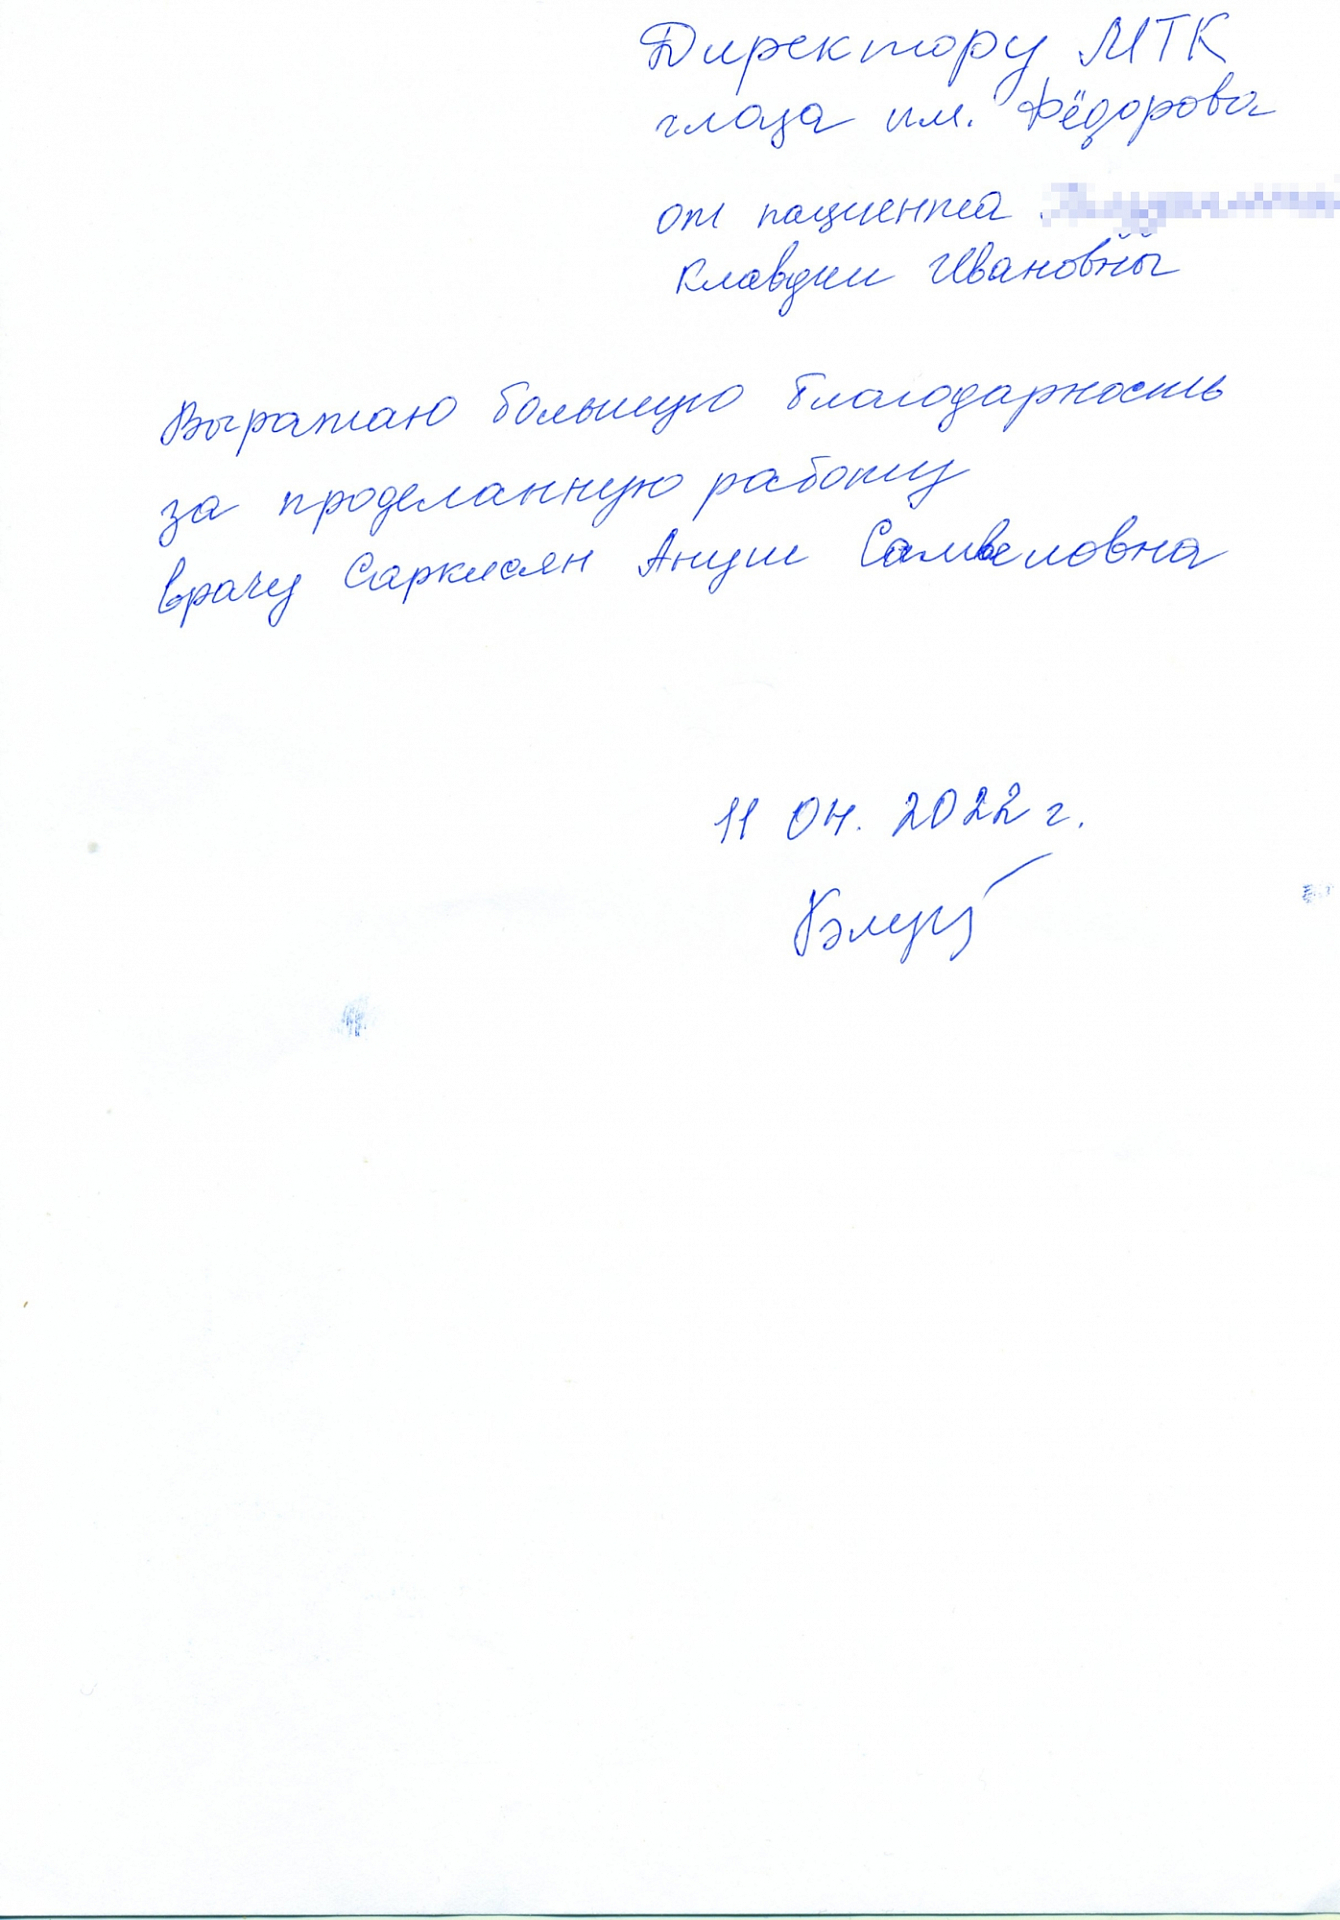 Директору МТК
глаза им. Фёдорова
от пациента
Клавдии Ивановны
Выражаю большую благодарность
за проделанную работу
врачу Саркисян Ануш Самвеловна
11 04. 2022 г.